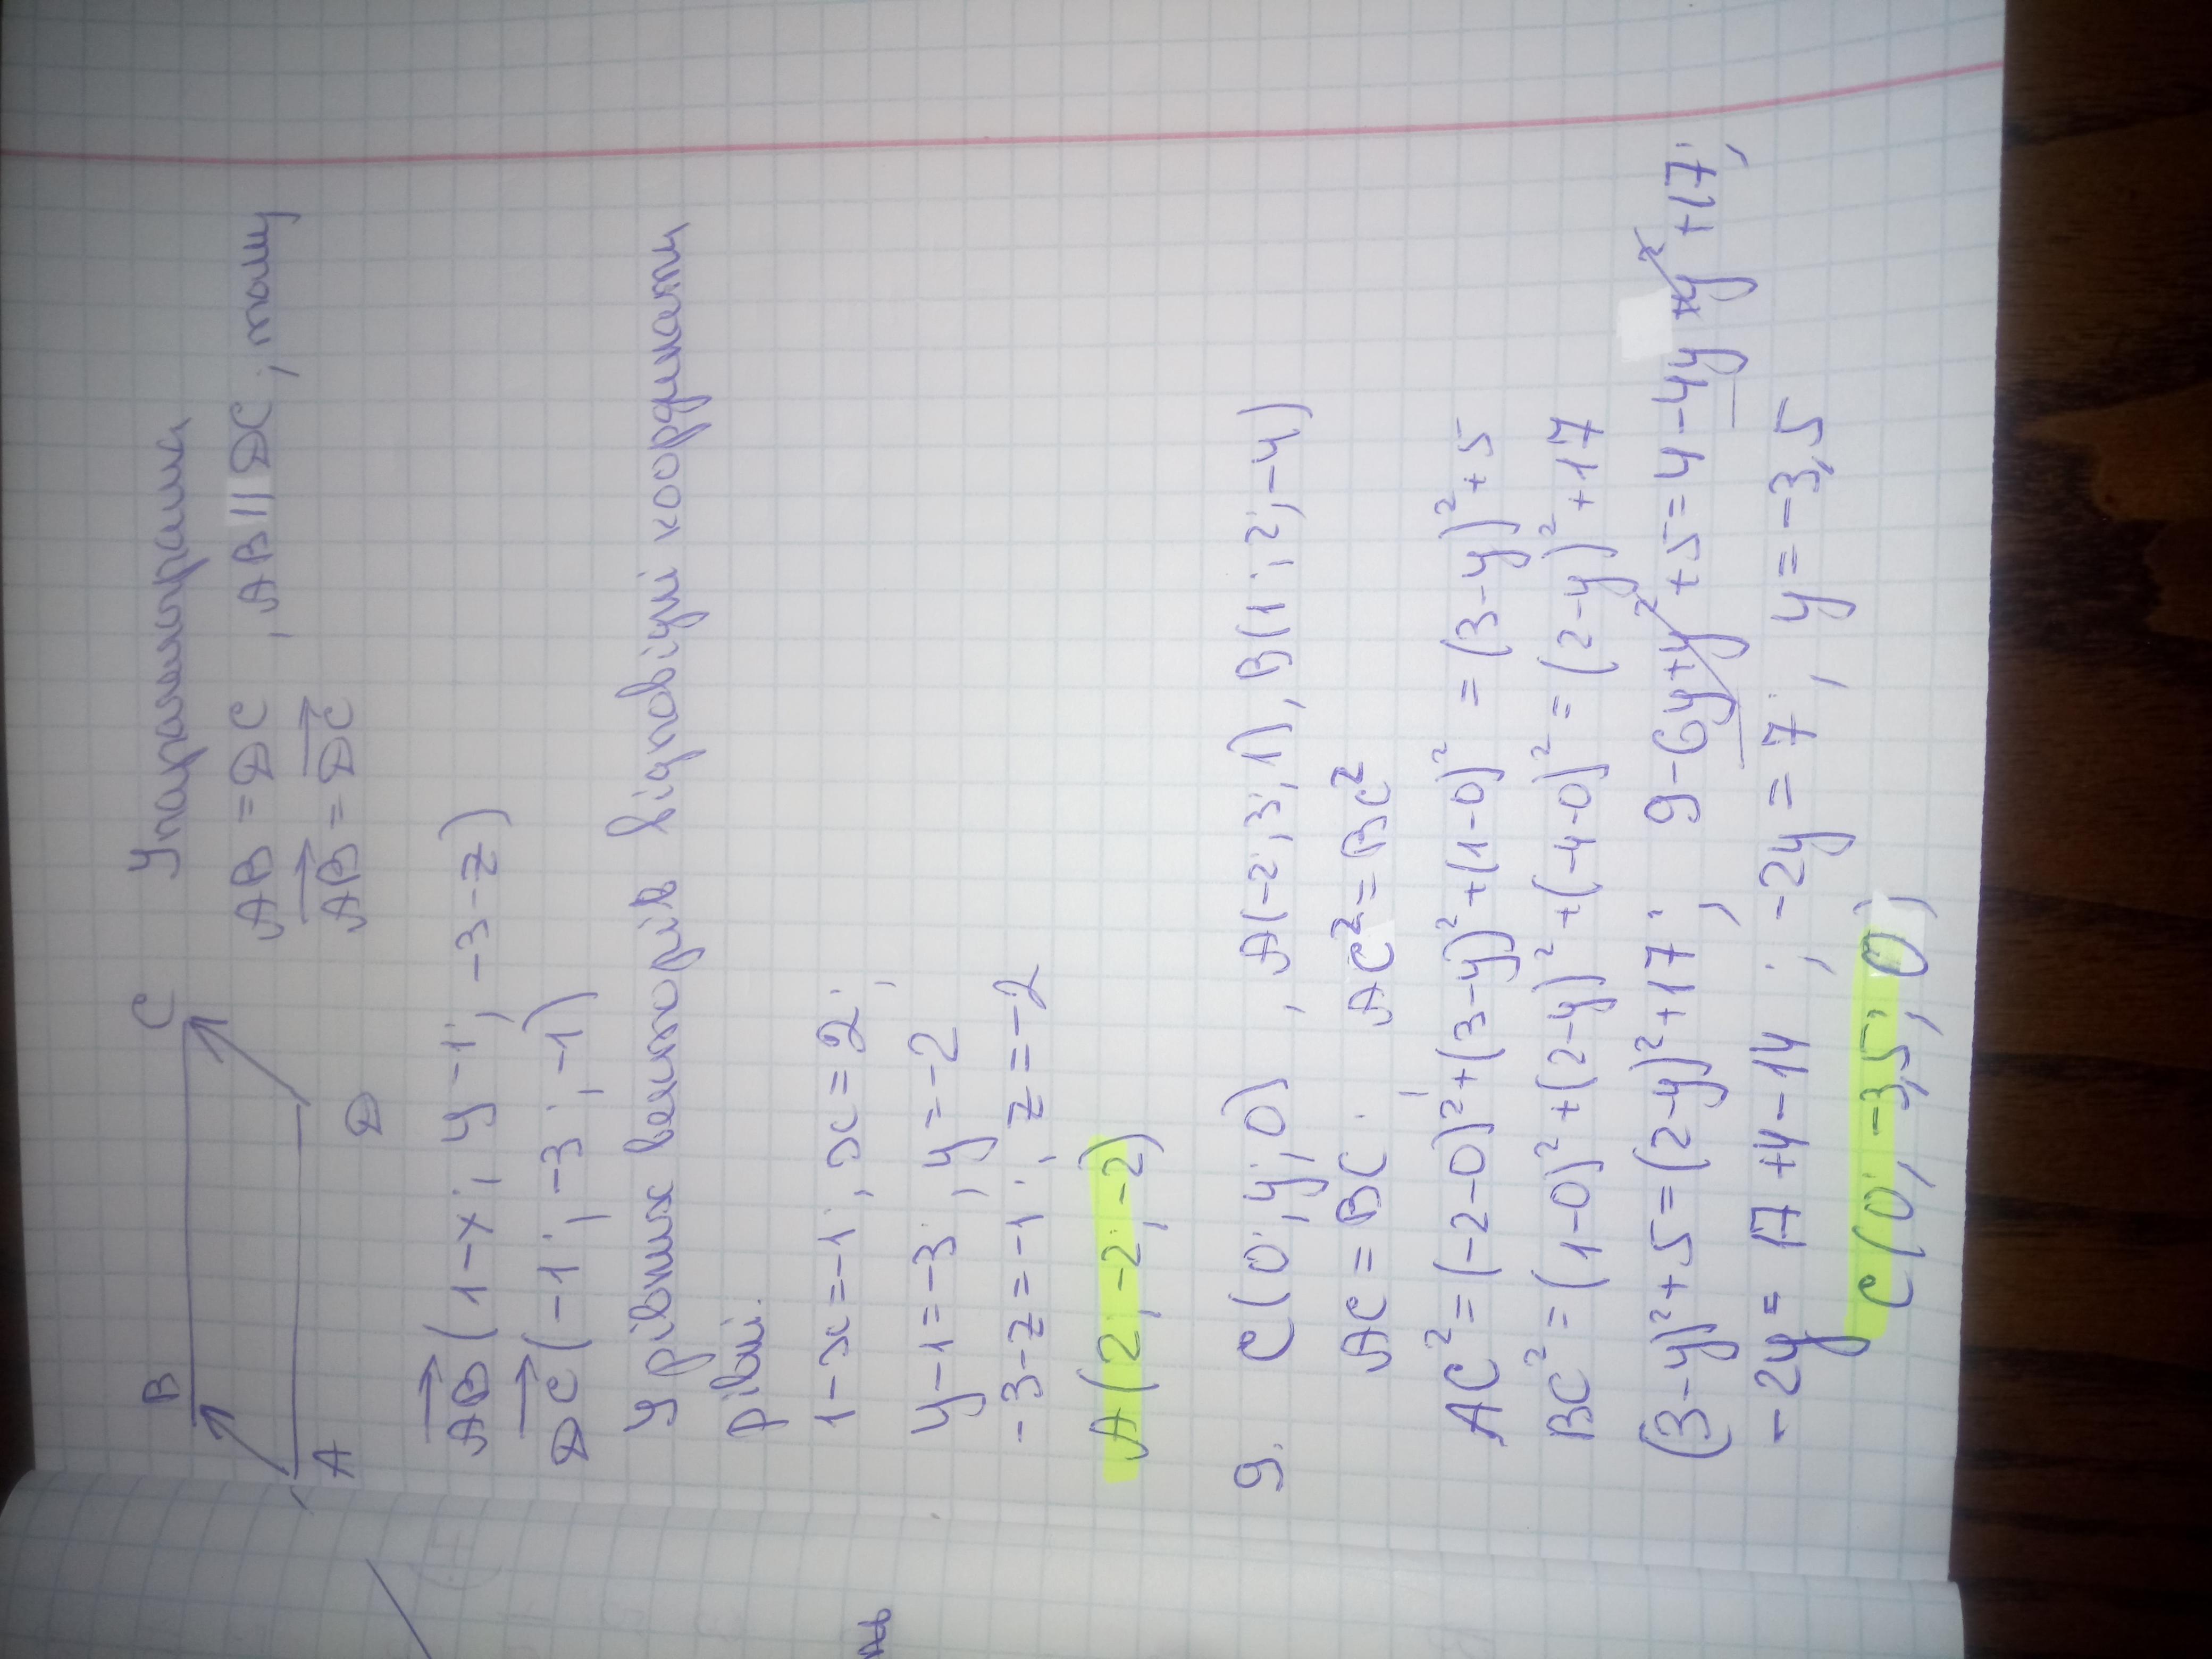 B C Упаралелограма
AB = DC , AB || DC ; тому
A D AB = DC
AB (1-x; y-1; -3-z)
DC (-1; -3; -1)
У рівних векторів відповідні координати
рівні.
1-x=-1; x=2;
y-1=-3; y=-2
-3-z=-1; z=-2
A(2; -2; -2)
9. C(0; y; 0) , A(-2; 3; 1), B(1; 2; -4)
AC = BC; AC² = BC²
AC² = (-2-0)²+(3-y)²+(1-0)² = (3-y)²+5
BC² = (1-0)²+(2-y)²+(-4-0)² = (2-y)²+17
(3-y)²+5=(2-y)²+17; 9-6y+y²+5=4-4y+y²+17;
-2y= 17+4-14 ; -2y=7; y=-3,5
C(0; -3,5; 0)
ль